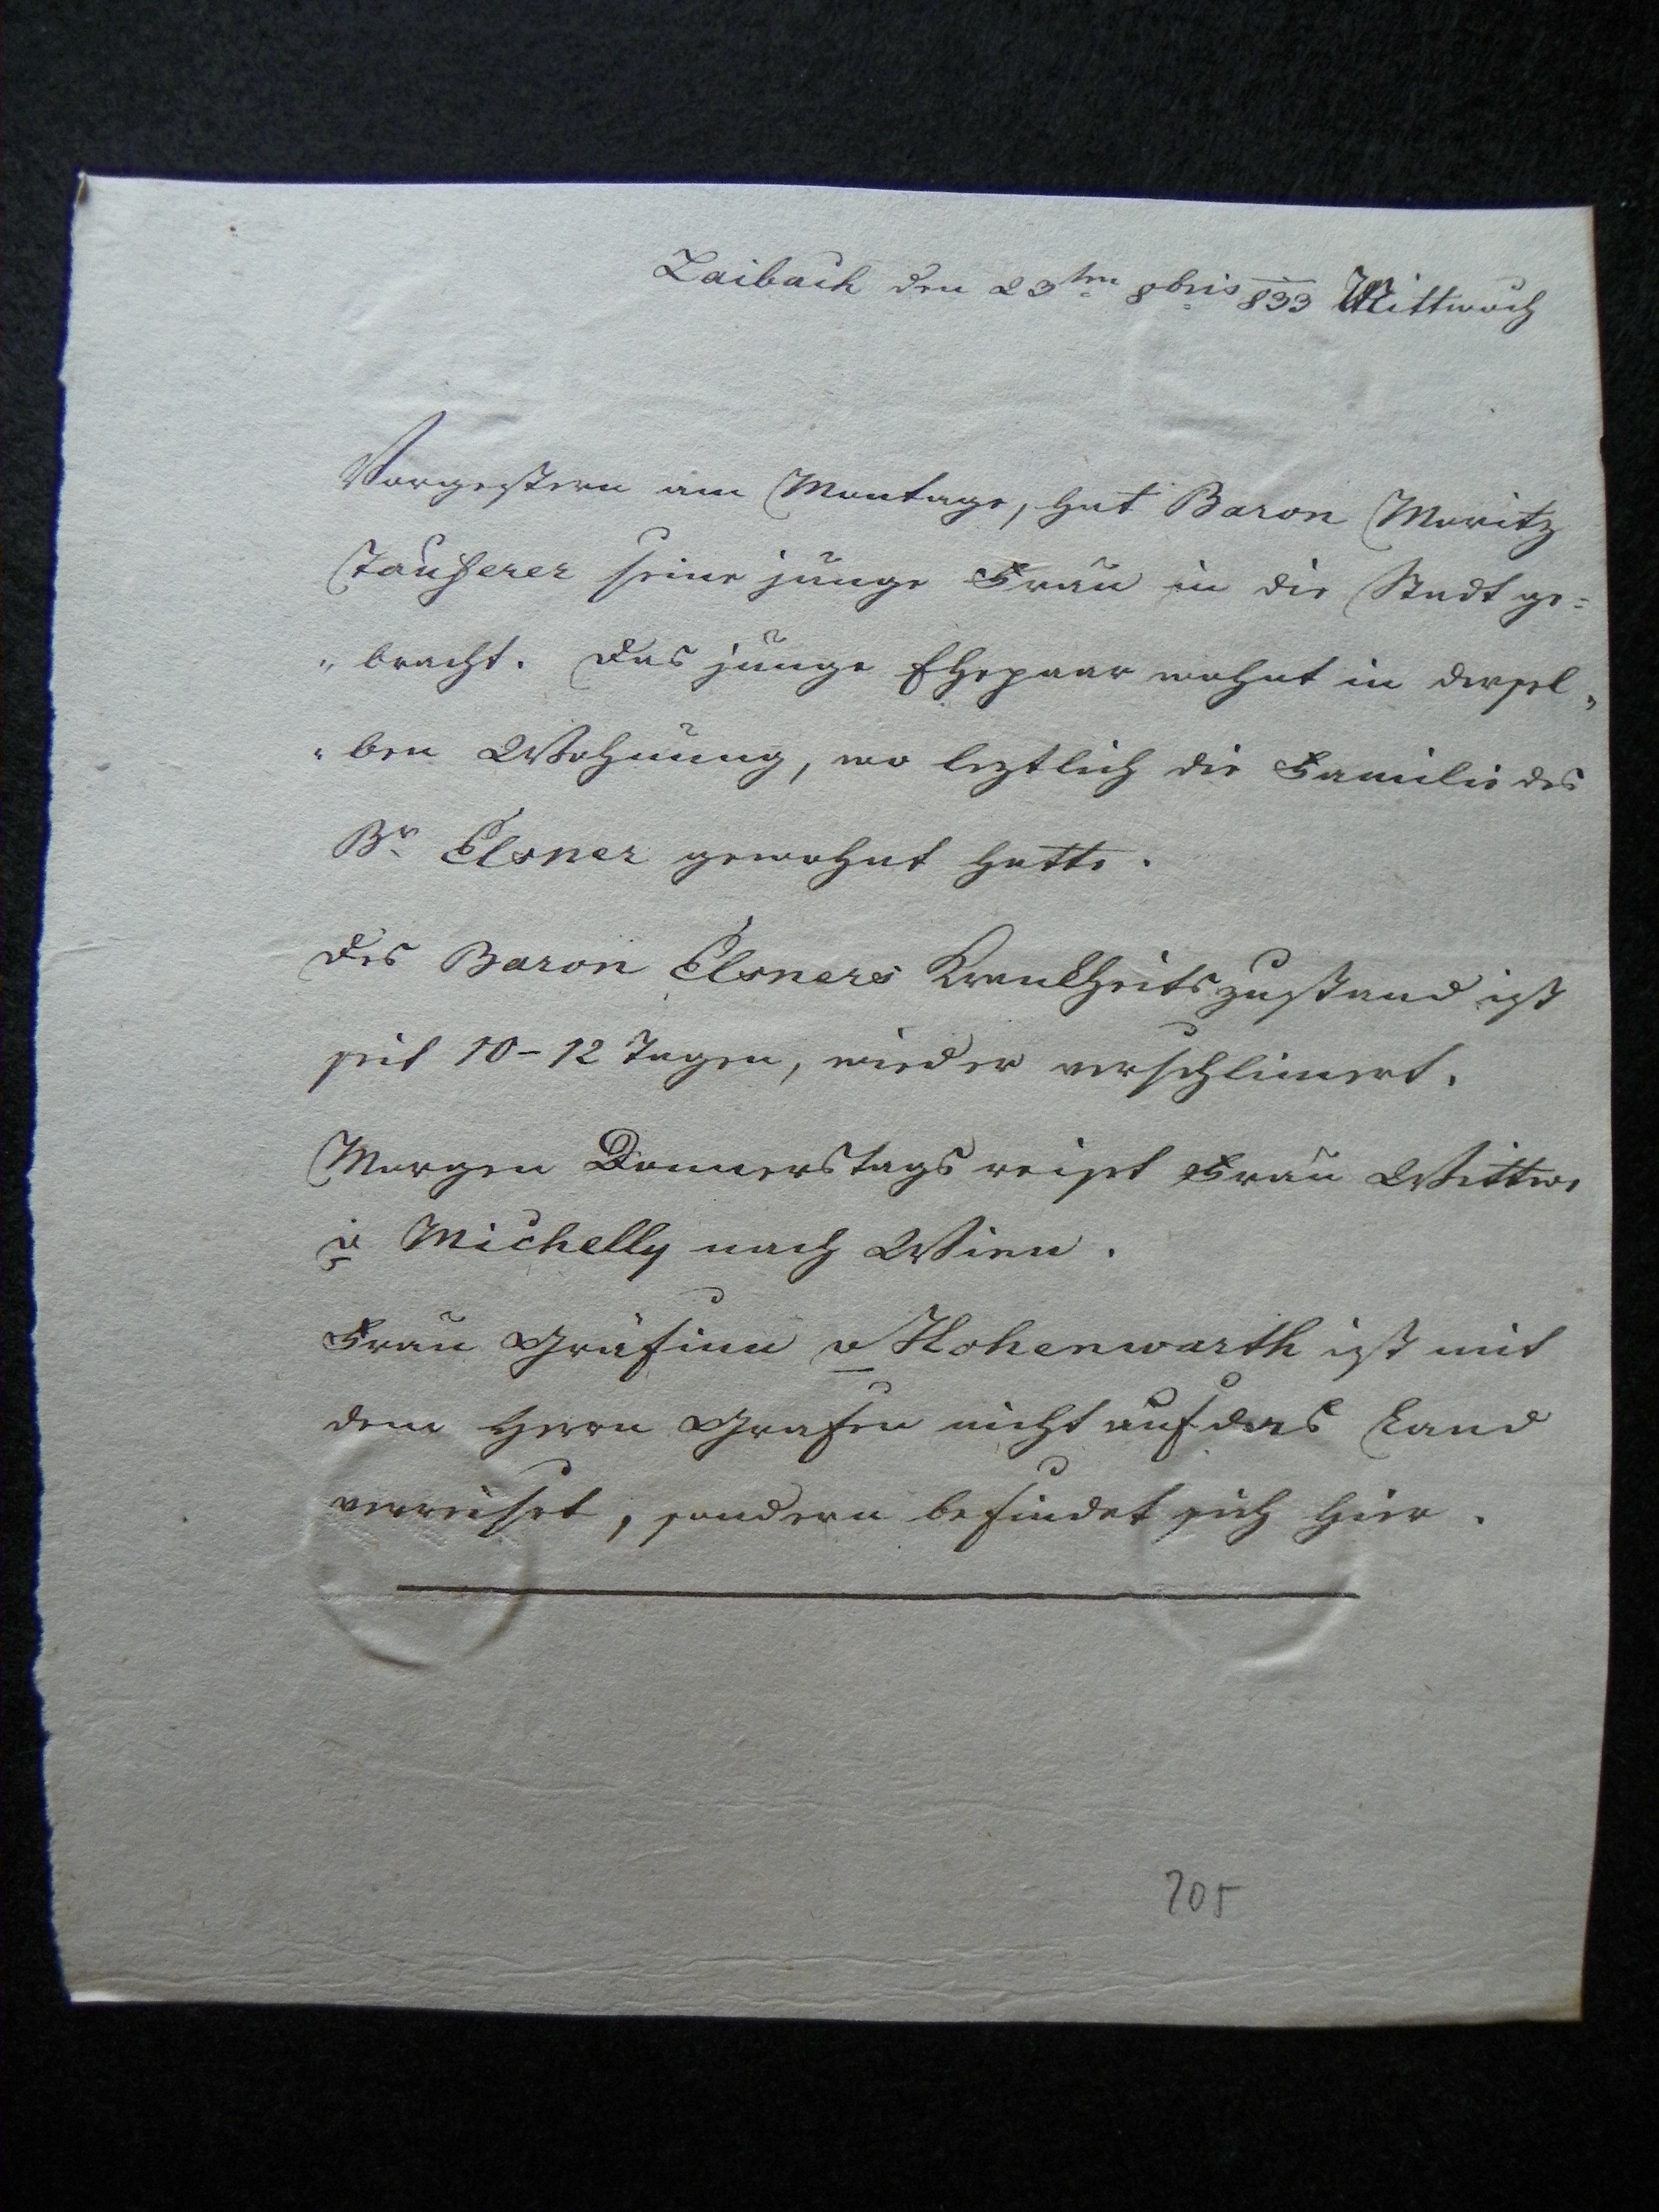 Laibach den 23ten 8bris 833 Mittwoch
Vorgestern am Montage, hat Baron Moritz
Taufferer seine junge Frau in die Stadt ge=
„bracht. Das junge Ehepaar wohnt in dersel„
„ben Wohnung, wo leztlich die Familie des
Br Elsner gewohnt hatte.
Des Baron Elsners Krankheitszustand ist
seit 10-12 Tagen, wieder verschlimert.
Morgen Donnerstags reiset Frau Wittwe
v Michelly nach Wien.
Frau Gräfinn v Hohenwarth ist mit
dem Herrn Grafen nicht auf das Land
verreiset, sondern befindet sich hier.
205